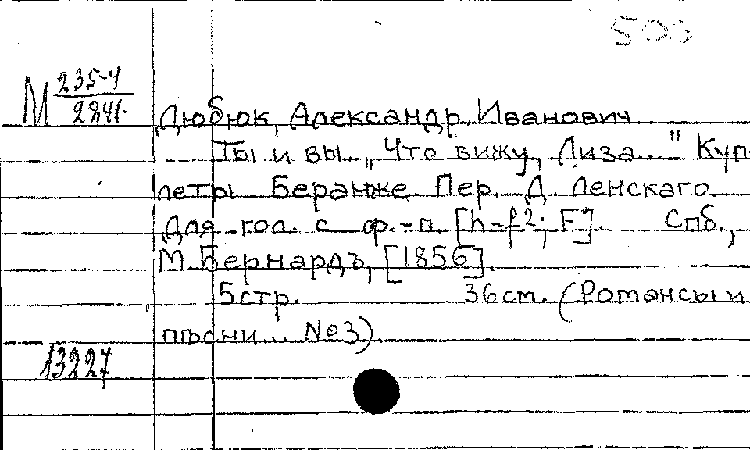 500
М 235-4
2841.
Дюбюк, Александр Иванович
Ты и вы. „Что вижу, Лиза..." Куп-
леты Беранже Пер. Д. Ленскаго.
Для гол. с ф.-п. [h-f²; F]. Спб.,
М. Бернардъ, [1856].
5 стр. 36 см. (Романсы и
песни... №3).
13227